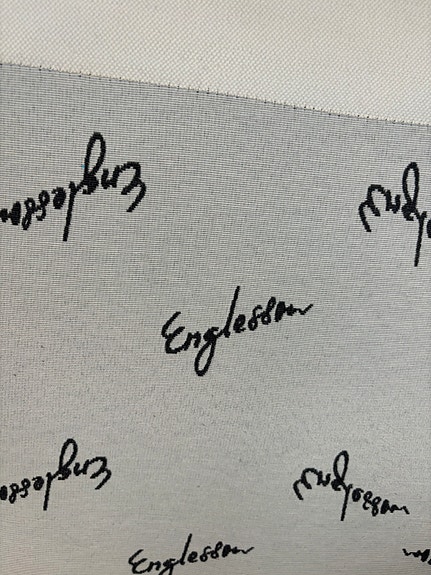 Englesson
Englesson
Englesson
Englesson
Englesson
Englesson